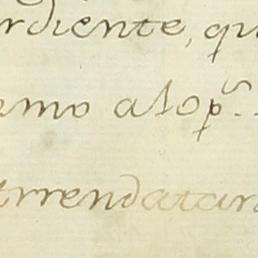 rdiente, qu
emo a
rrendatar